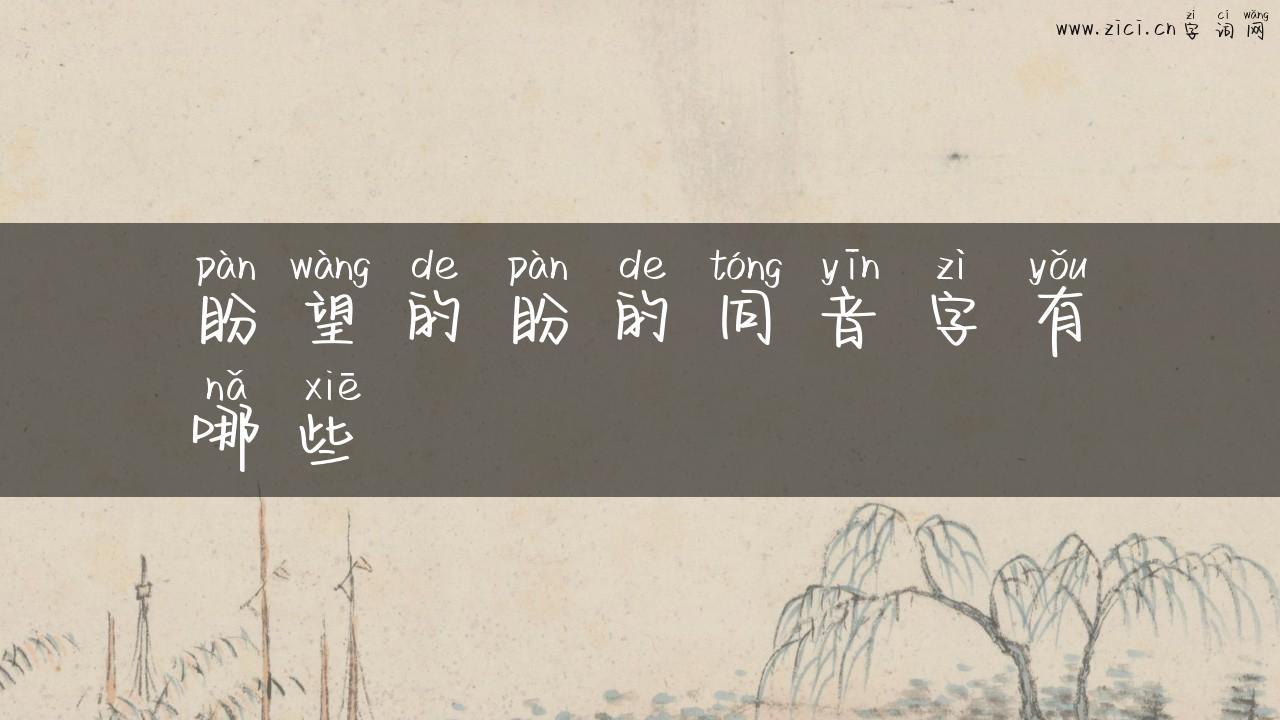 zì cí wǎng
www.zici.cn字词网
pàn wàng de pàn de tóng yīn zì yǒu
盼望的盼的同音字有
nǎ xiē
哪些